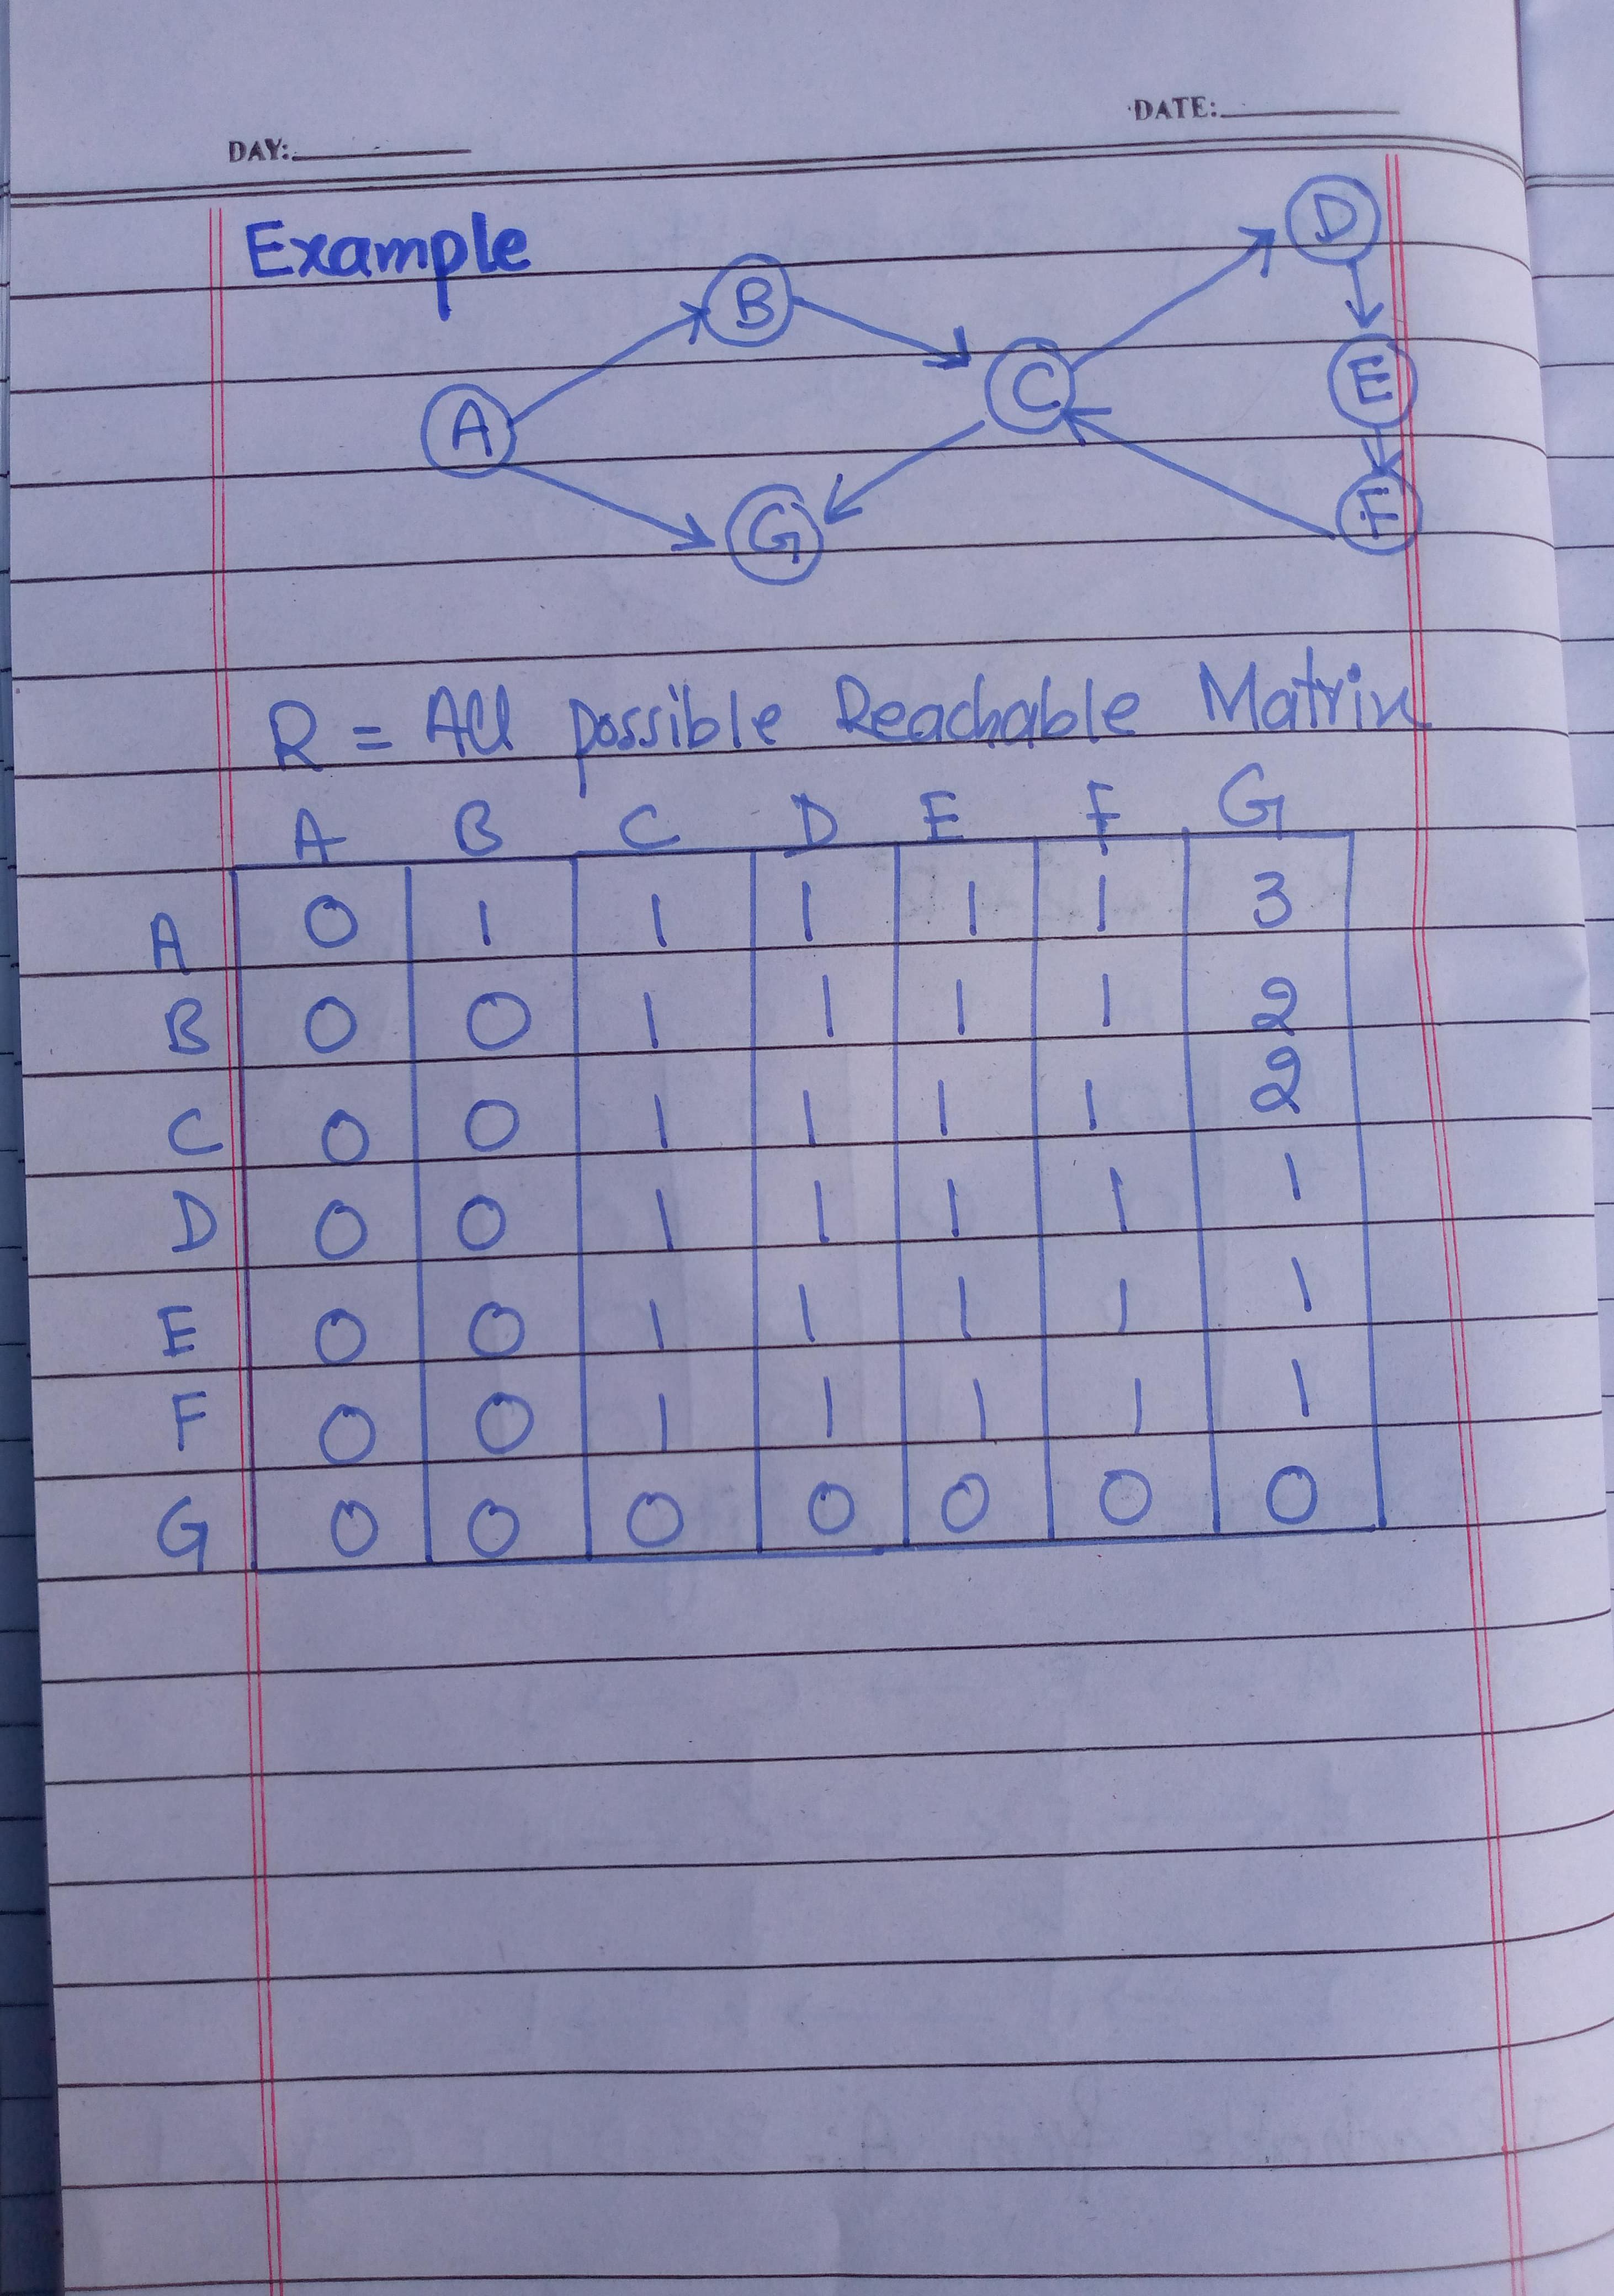 DATE:
DAY:
Example
D
B
E
C
A
F
G
R = All possible Reachable Matrix
A B C D E F G
A 0 1 1 1 1 1 3
B 0 0 1 1 1 1 2
C 0 0 1 1 1 1 2
D 0 0 1 1 1 1 1
E 0 0 1 1 1 1 1
F 0 0 1 1 1 1 1
G 0 0 0 0 0 0 0